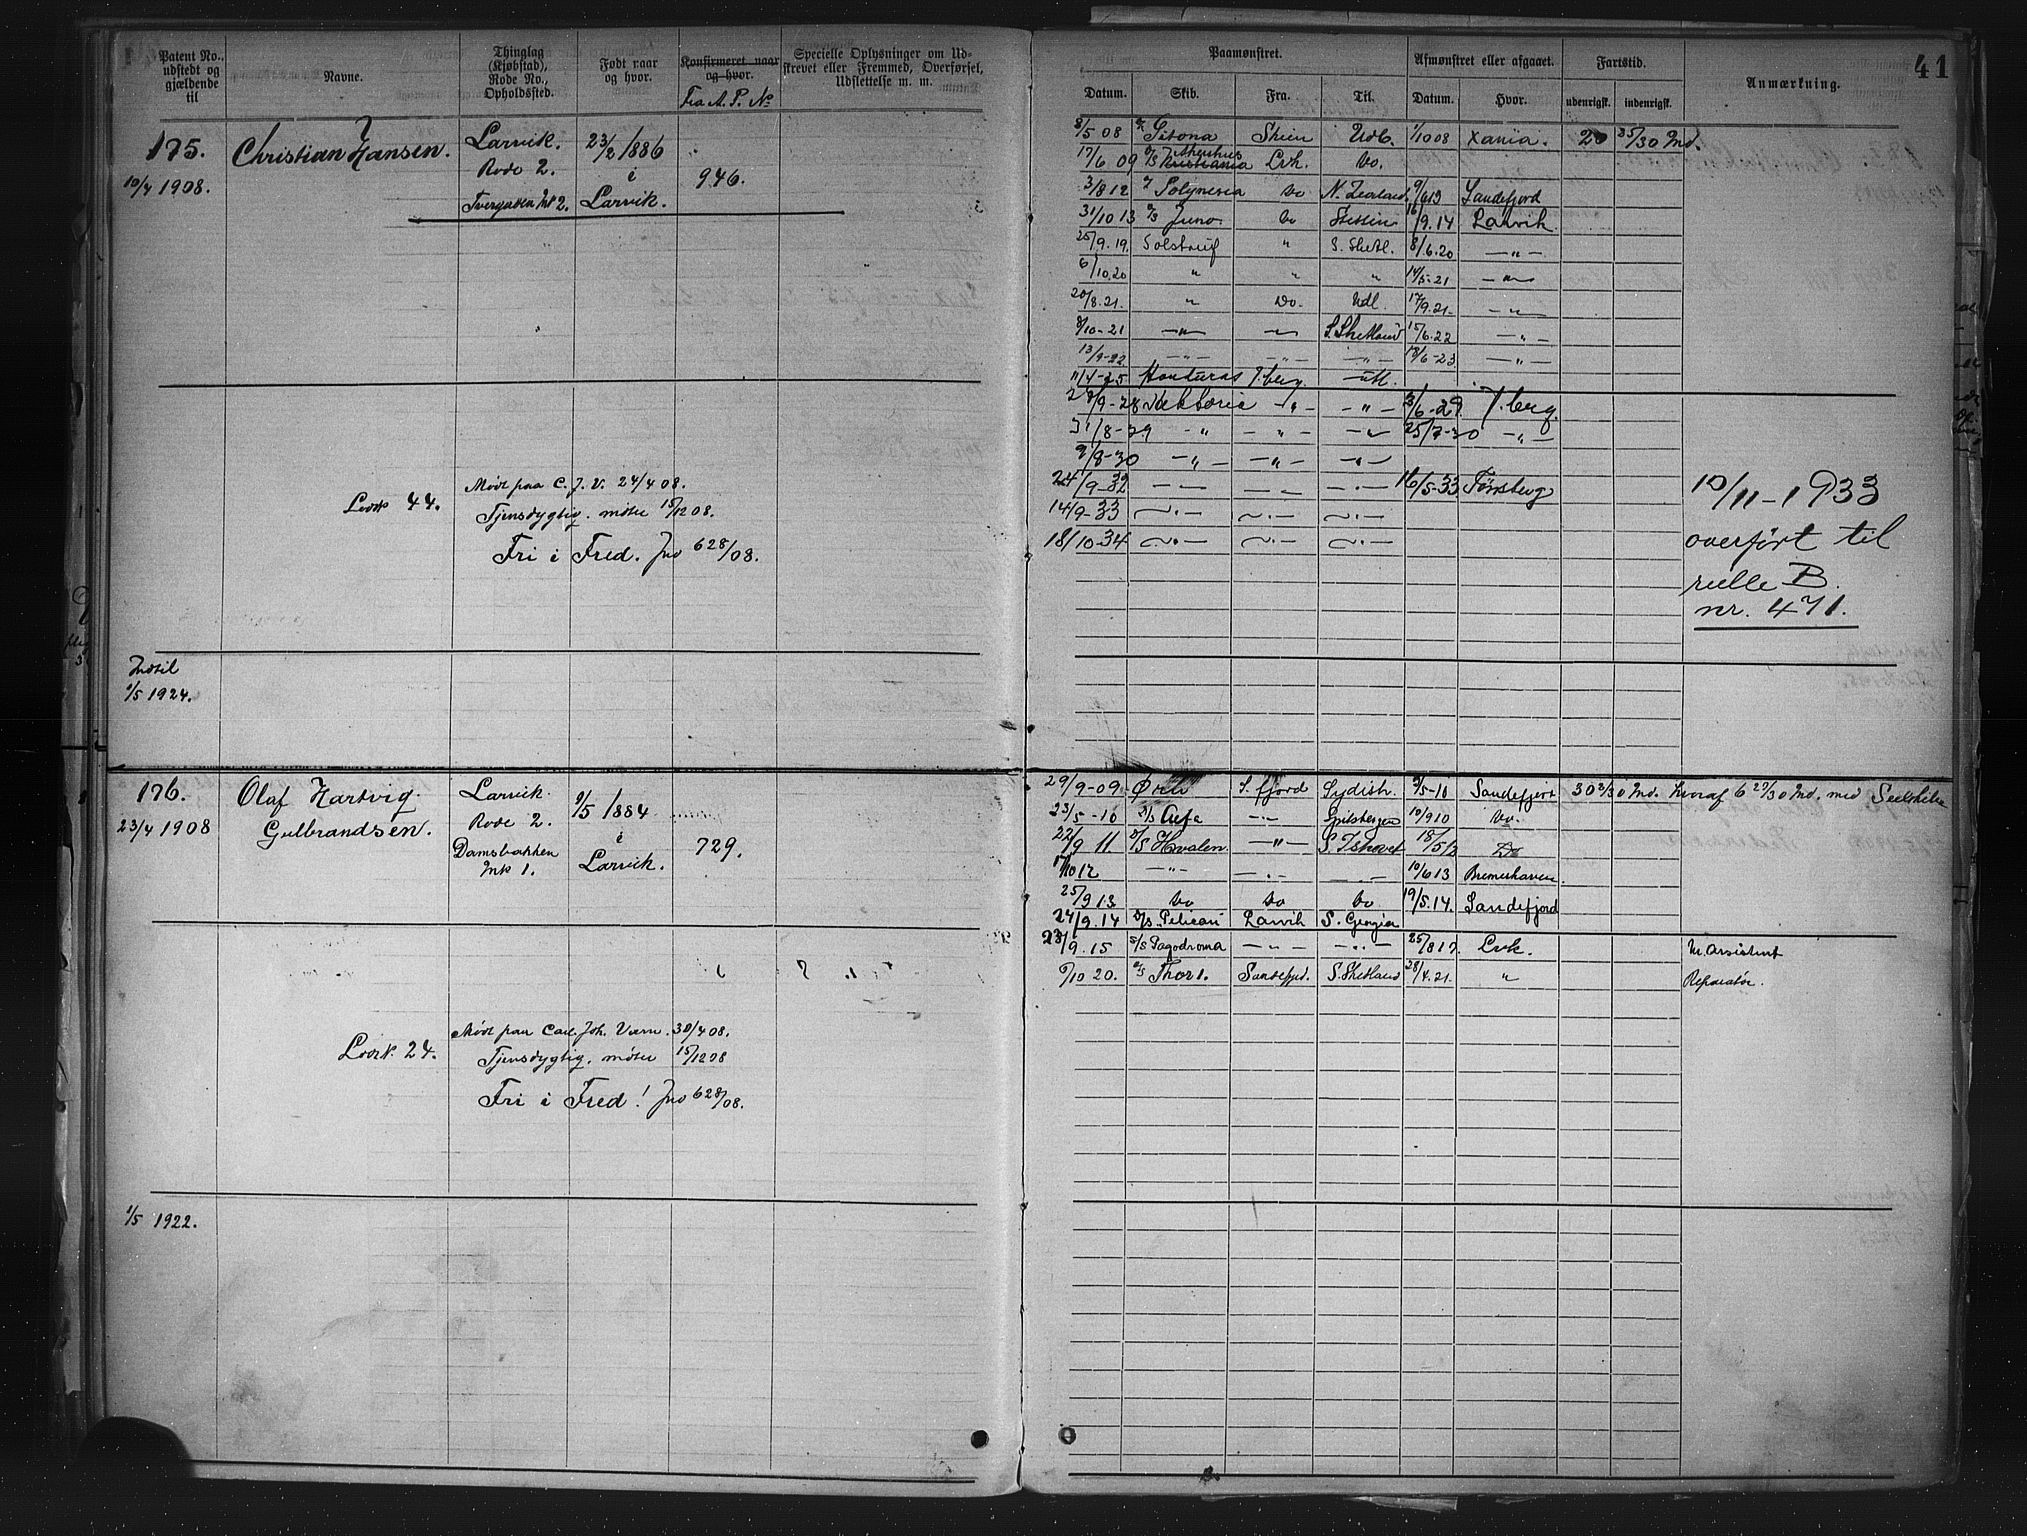 41
Patent No., udstedt og gjældende til
Navne.
Thinglag (Kjøbstad), Rode No., Opholdssted.
Født naar og hvor.
Konfirmeret naar og hvor.
Fra A. P. No
Specielle Oplysninger om Udskrevet eller Fremmed, Overførsel, Udslettelse m. m.
Paamønstret.
Afmønstret eller afgaaet.
Fartstid.
Anmærkning.
Datum. Skib. Fra. Til. Datum. Hvor. udenrigsk. indenrigsk.
175.
10/4 1908.
Christian Hansen.
Larvik.
Rode 2.
Tvergaden No 2.
23/2 1886
i
Larvik.
946.
Lvk 44.
Mødt paa C. J. V. 24/4 08.
Tjensdygtig. møter 15/12 08.
Fri i Fred. Jno 628/08.
Indtil
1/5 1924.
8/5 08 Sitona Skien Udl. 1/10 08 Xania. 20 25/30 Md.
17/6 09 D/S Kristiania Lvk. Do.
3/8 12 Polynesia Do N. Zealand 9/6 13 Sandefjord
31/10 13 D/S Juno. Do Stettin 16/9.14 Larvik
25/9.19. Solstreif " S. Shetl. 8/6.20 — " —
6/10.20 " " " 14/5-21 — " —
20/8.21. " Do. Udl 17/9.21. — " —
8/10-21 — " — — " — S. Shetland 15/6.22 — " —
13/9-22 — " — — " — — " — 18/6-23 — " —
11/4-25 Honduras T.berg. utl.
28/9-28 — " — — " — 3/6-29. T.berg.
31/8-29 — " — — " — — " — 25/7-30 — " —
9/8-30 — " — — " — — " —
24/9-32 — " — — " — — " — 16/5-33 Tønsberg
14/9-33 — " — — " — — " —
18/10-34 — " — — " — — " —
10/11-1933
overført til
rulle B.
nr. 471.
176.
23/4 1908
Olaf Hartvig
Gulbrandsen.
Larvik.
Rode 2.
Damsbakken
No 1.
9/5 1884
i
Larvik.
729.
Lvk. 24.
Mødt paa Carl Joh. Værn. 30/4 08.
Tjensdygtig, møter 15/12 08
Fri i Fred! Jno 628/08.
1/5 1922.
29/9-09 Ørn S. fjord Sydish. 9/5-10 Sandefjord 30 2/30 Md. hvoraf 6 29/30 Md. med Seilskibe
23/5-10 D/S — " — Spitsbergen 10/9 10 Do.
22/9 11. D/S Hvalen — " — S. Ishavet 18/5 12 Do
17/10 12 — " — — " — — " — 10/6 13 Bremerhaven
25/9 13 Do Do Do 19/5.14. Sandefjord
24/9.14 D/S. Pelican Larvik S. Georgia
23/9.15 S/S Pagodroma — " — — " — 25/8 17. Lvk. M. Assistent
9/10 20. D/S Thor I. Sandefjd. S. Shetland 28/4.21. " Reparatør.